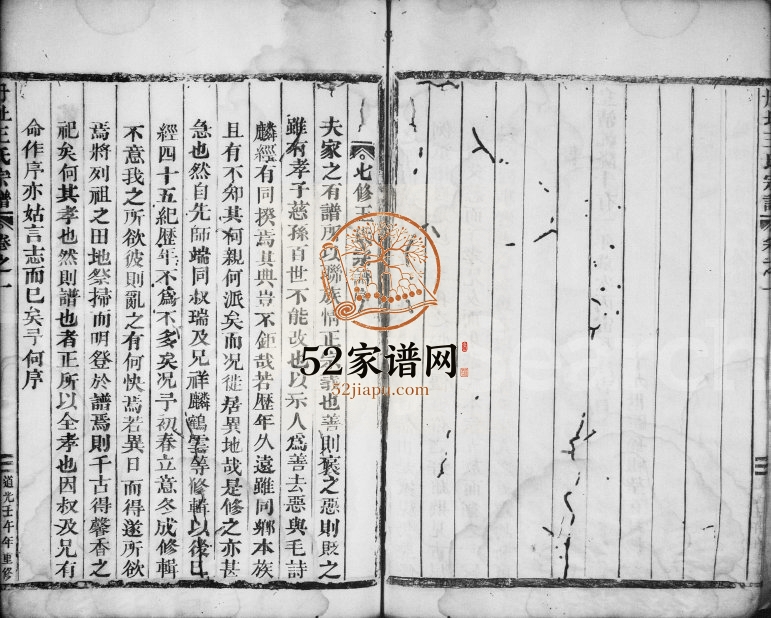 七修王
夫家之有譜所以聯族情正 義也善則褒之惡則貶之
雖有孝子慈孫百世不能改也以示人爲善去惡與毛詩
麟經有同揆焉其典豈不鉅哉若歷年久遠雖同鄉本族
且有不知其何親何派矣而况徙居異地哉是修之亦甚
急也然自先師端同叔瑞及兄祥麟鶴雲等修輯以後已
經四十五紀歷年不爲不多矣况予初春立意冬成修輯
不意我之所欲彼則亂之有何快焉若異日而得遂所欲
焉將列祖之田地祭掃而明登於譜焉則千古得馨香之
祀矣何其孝也然則譜也者正所以全孝也因叔及兄有
命作序亦姑言志而已矣予何序
王氏宗譜
卷之一
道光壬午年重修
52家谱网
52jiapu.com